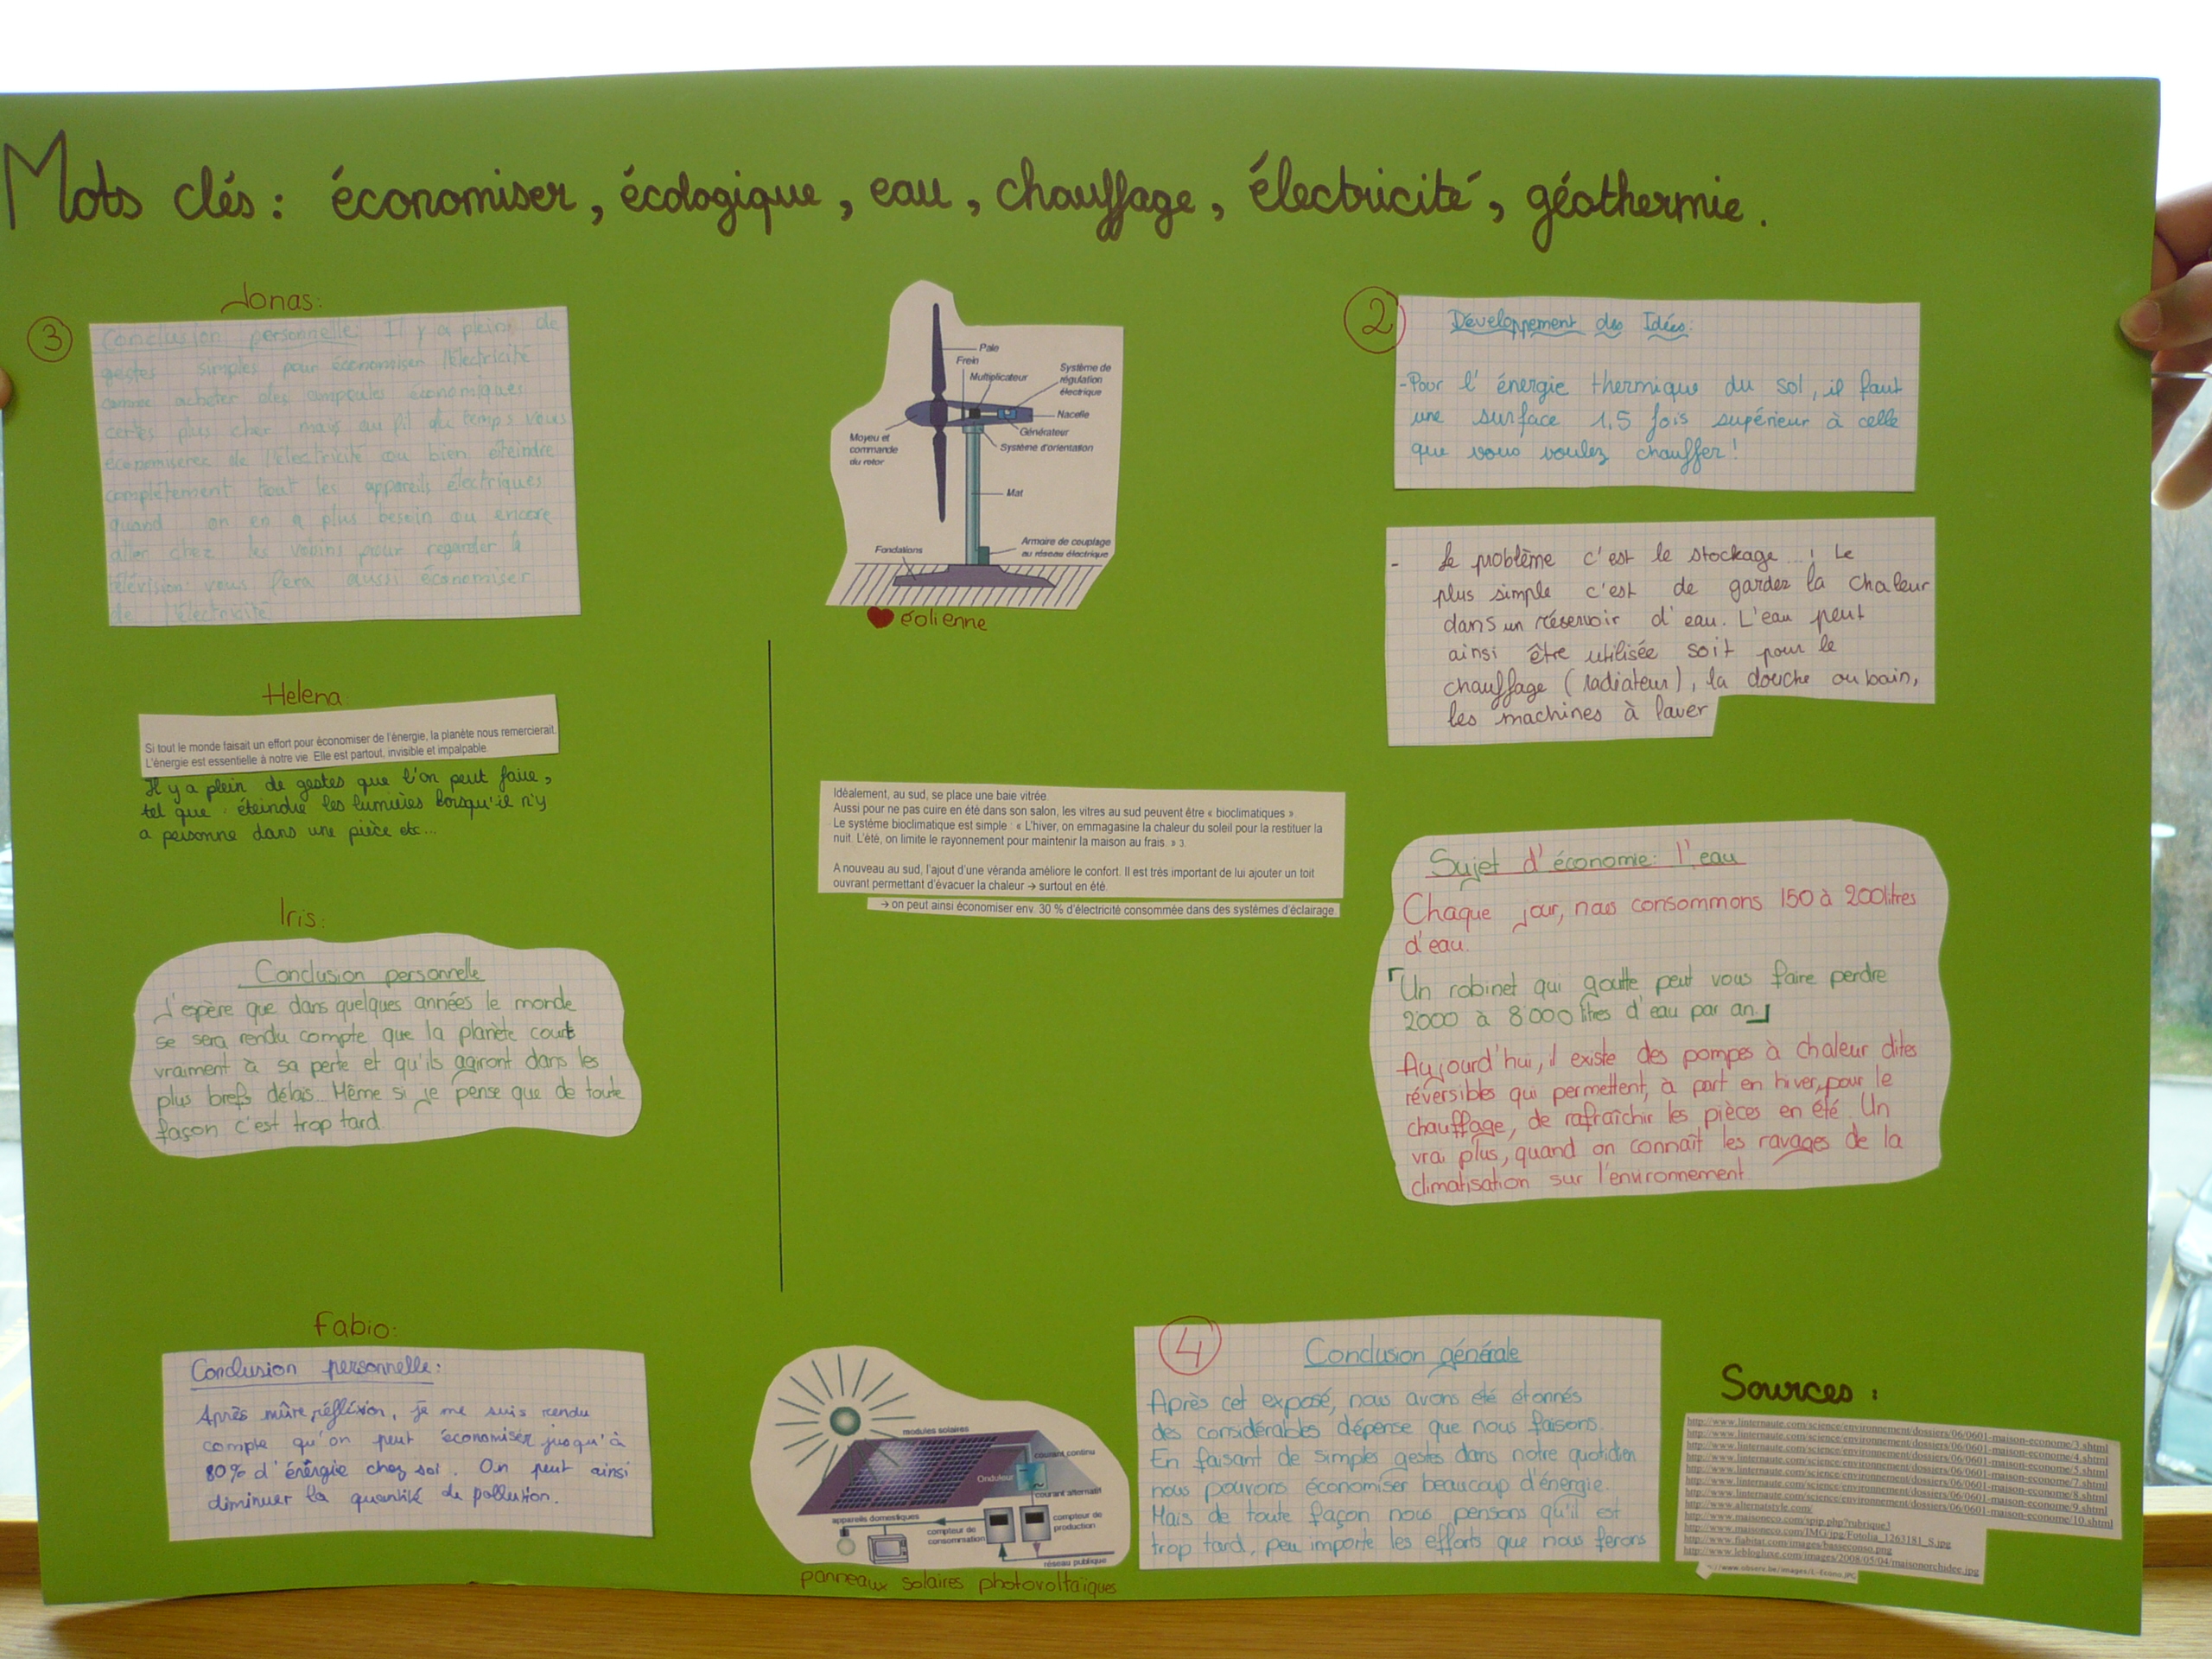 Mots clés : économiser, écologique, eau, chauffage, électricité, géothermie.
Jonas:
3
Conclusion personnelle: Il y a pleins de
gestes simples pour économiser l'électricité
comme acheter des ampoules économiques
certes plus cher mais au fil du temps vous
économiserez de l'électricité ou bien éteindre
complètement tout les appareils électriques
quand on en a plus besoin ou encore
aller chez les voisins pour regarder la
télévision vous fera aussi économiser
de l'électricité
Helena:
Si tout le monde faisait un effort pour économiser de l'énergie, la planète nous remercierait.
L'énergie est essentielle à notre vie. Elle est partout, invisible et impalpable.
Il y a plein de gestes que l'on peut faire,
tel que : éteindre les lumières lorsqu'il n'y
a personne dans une pièce etc...
Iris:
Conclusion personnelle
J'espère que dans quelques années le monde
se sera rendu compte que la planète court
vraiment à sa perte et qu'ils agiront dans les
plus brefs délais. Même si je pense que de toute
façon c'est trop tard.
Fabio:
Conclusion personnelle:
Après mûre réfléxion, je me suis rendu
compte qu'on peut économiser jusqu'à
80% d'énérgie chez soi. On peut ainsi
diminuer la quantité de pollution.
Pale
Frein
Multiplicateur
Système de
régulation
électrique
Nacelle
Générateur
Système d'orientation
Moyeu et
commande
du rotor
Mat
Fondations
Armoire de couplage
au réseau électrique
éolienne
Idéalement, au sud, se place une baie vitrée.
Aussi pour ne pas cuire en été dans son salon, les vitres au sud peuvent être « bioclimatiques ».
Le système bioclimatique est simple : « L'hiver, on emmagasine la chaleur du soleil pour la restituer la
nuit. L'été, on limite le rayonnement pour maintenir la maison au frais. » 3.
A nouveau au sud, l'ajout d'une véranda améliore le confort. Il est très important de lui ajouter un toit
ouvrant permettant d'évacuer la chaleur → surtout en été.
→ on peut ainsi économiser env. 30 % d'électricité consommée dans des systèmes d'éclairage.
modules solaires
courant continu
Onduleur
courant alternatif
appareils domestiques
compteur de
consommation
compteur de
production
réseau publique
panneaux solaires photovoltaïques
2
Développement des Idées:
-Pour l'énergie thermique du sol, il faut
une surface 1,5 fois supérieur à celle
que vous voulez chauffer!
- Le problème c'est le stockage...! Le
plus simple c'est de garder la chaleur
dans un réservoir d'eau. L'eau peut
ainsi être utilisée soit pour le
chauffage (radiateur), la douche ou bain,
les machines à laver
Sujet d'économie: l'eau
Chaque jour, nous consommons 150 à 200 litres
d'eau.
「Un robinet qui goutte peut vous faire perdre
2'000 à 8'000 litres d'eau par an.」
Aujourd'hui, il existe des pompes à chaleur dites
réversibles qui permettent, à part en hiver, pour le
chauffage, de rafraîchir les pièces en été. Un
vrai plus, quand on connaît les ravages de la
climatisation sur l'environnement
4
Conclusion générale
Après cet exposé, nous avons été étonnés
des considérables dépense que nous faisons.
En faisant de simples gestes dans notre quotidien
nous pouvons économiser beaucoup d'énergie.
Mais de toute façon nous pensons qu'il est
trop tard, peu importe les efforts que nous ferons
Sources :
http://www.linternaute.com/science/environnement/dossiers/06/0601-maison-econome/3.shtml
http://www.linternaute.com/science/environnement/dossiers/06/0601-maison-econome/4.shtml
http://www.linternaute.com/science/environnement/dossiers/06/0601-maison-econome/5.shtml
http://www.linternaute.com/science/environnement/dossiers/06/0601-maison-econome/7.shtml
http://www.linternaute.com/science/environnement/dossiers/06/0601-maison-econome/8.shtml
http://www.linternaute.com/science/environnement/dossiers/06/0601-maison-econome/9.shtml
http://www.linternaute.com/science/environnement/dossiers/06/0601-maison-econome/10.shtml
http://www.alternatstyle.com/
http://www.maisoneco.com/spip.php?rubrique3
http://www.maisoneco.com/IMG/jpg/Fotolia_1263181_S.jpg
http://www.fiabitat.com/images/basseconso.png
http://www.leblogluxe.com/images/2008/05/04/maisonorchidee.jpg